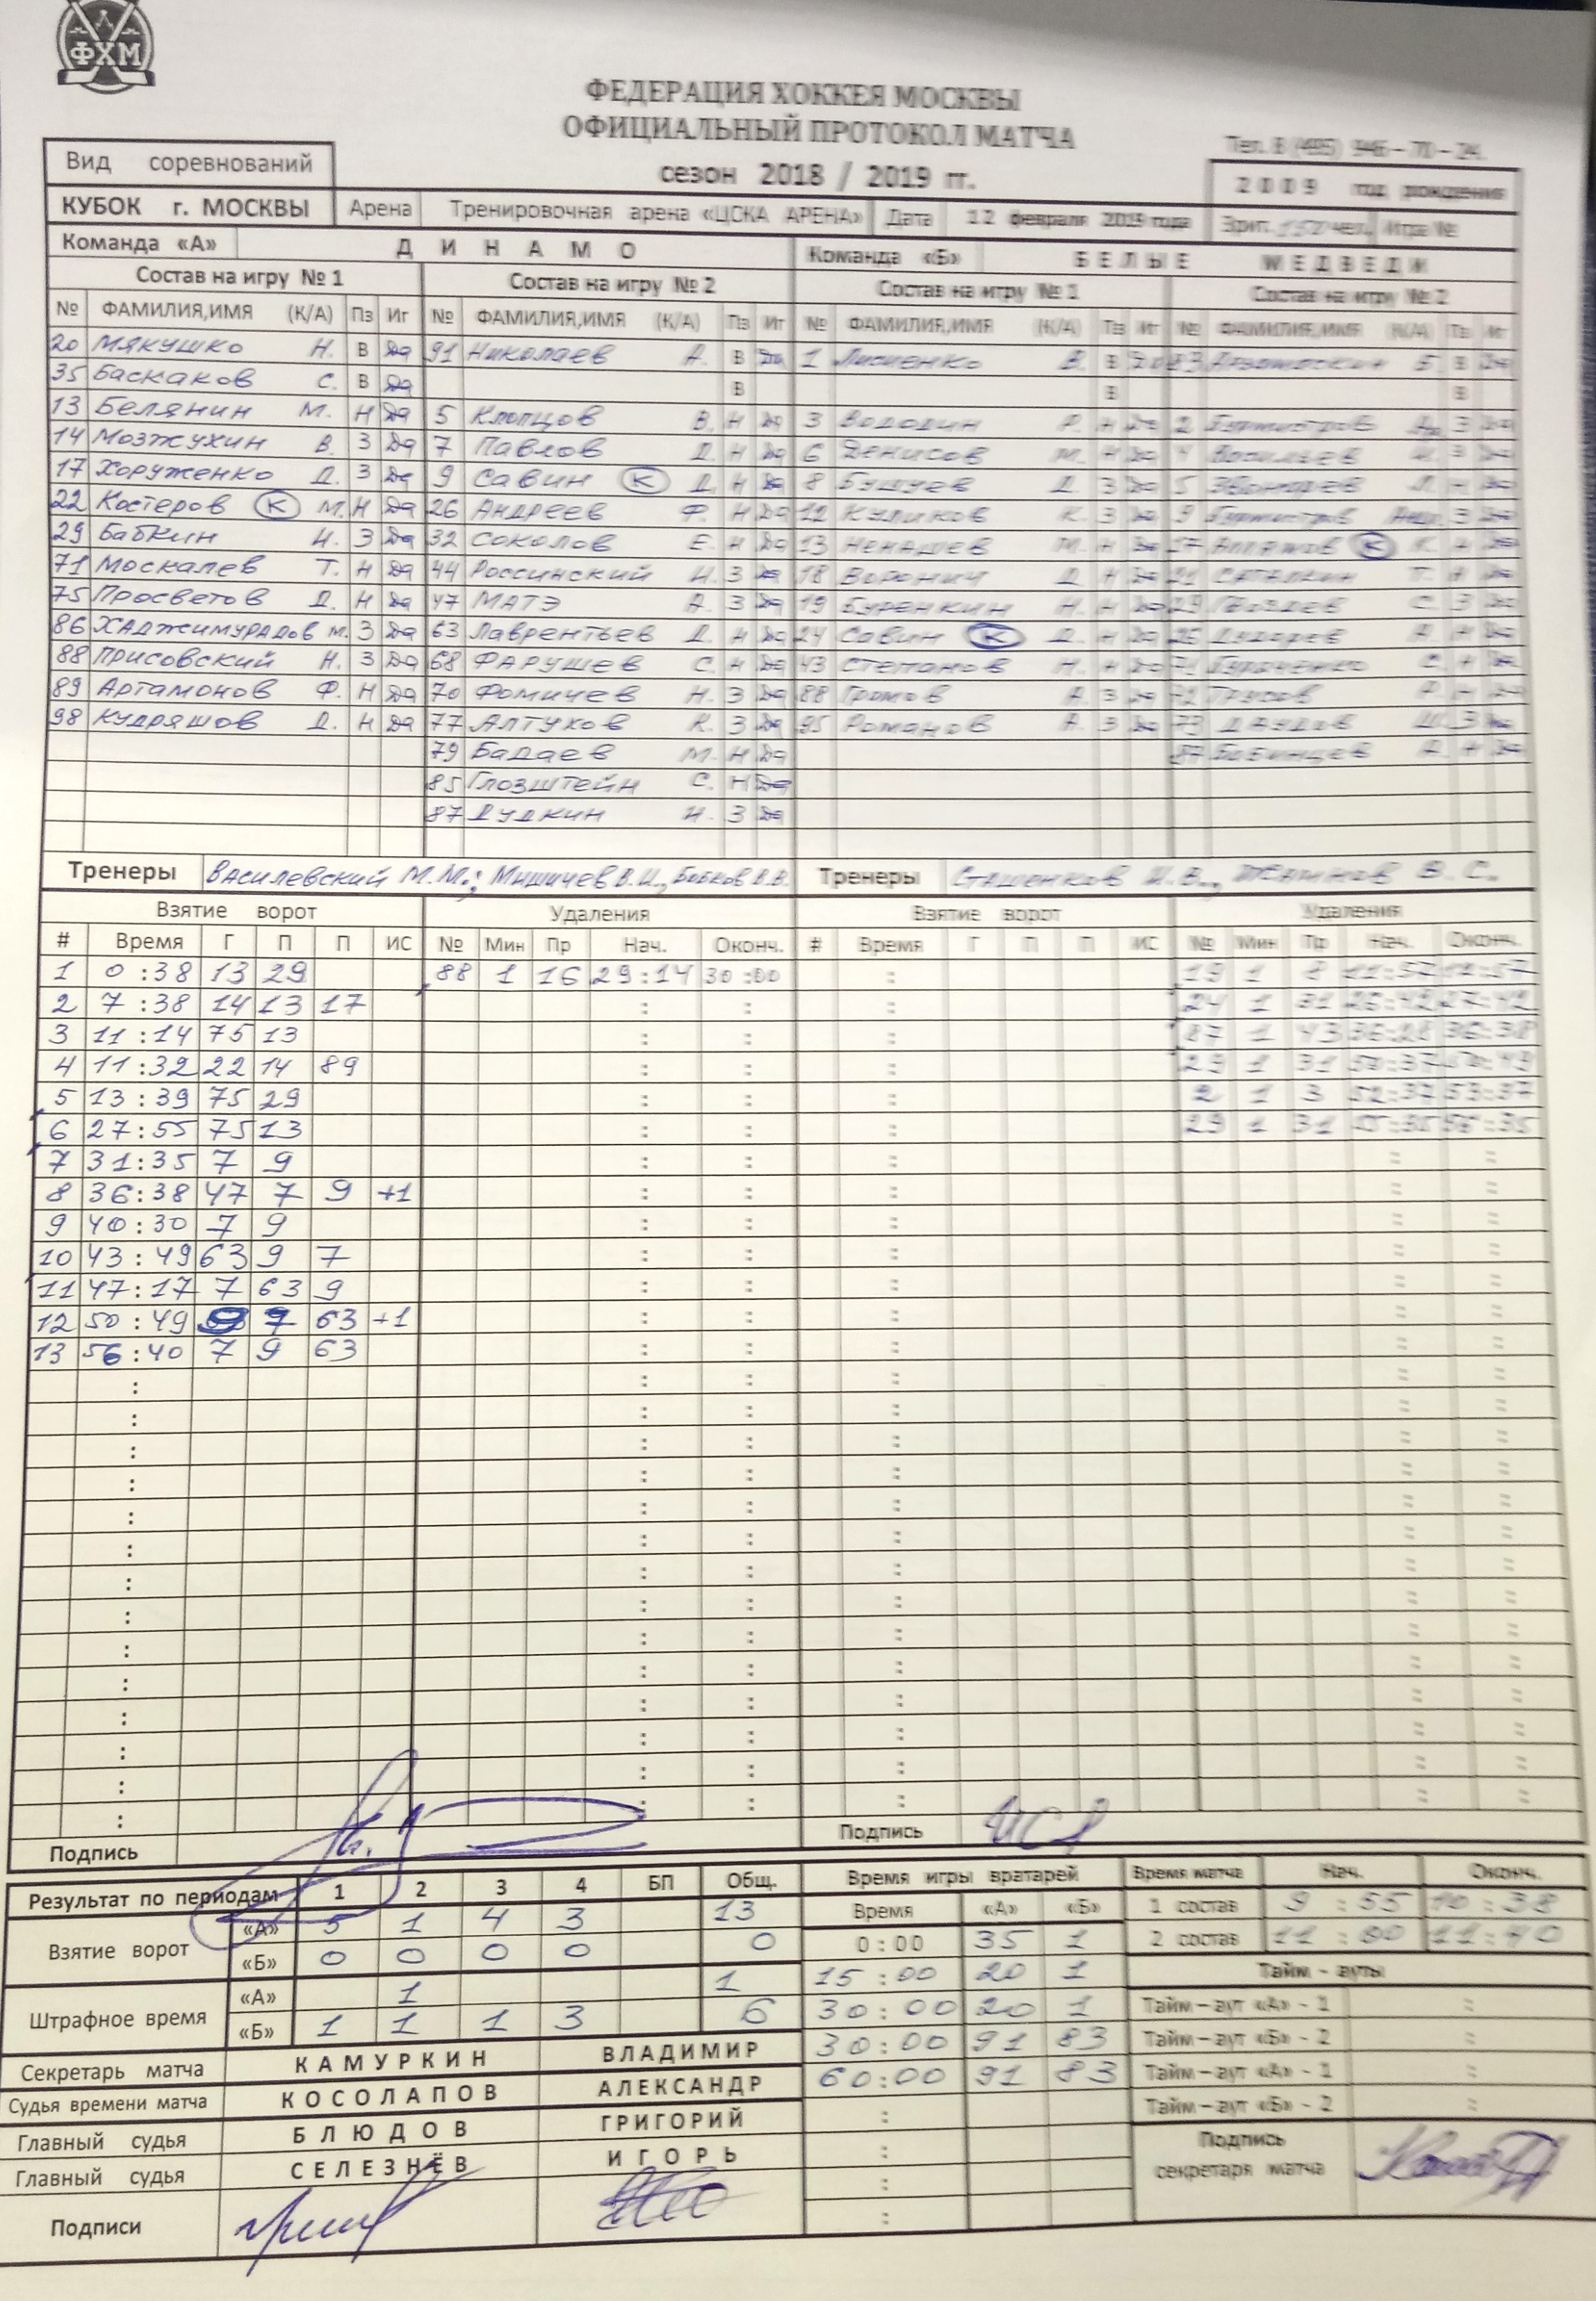 ФХМ
ФЕДЕРАЦИЯ ХОККЕЯ МОСКВЫ
ОФИЦИАЛЬНЫЙ ПРОТОКОЛ МАТЧА
Тел. 8 (495) 946 – 70 – 24
Вид соревнований сезон 2018 / 2019 гг. 2009 год рождения
КУБОК г. МОСКВЫ Арена Тренировочная арена «ЦСКА АРЕНА» Дата 12 февраля 2019 года Зрит. 150 чел. Игра №
Команда «А» ДИНАМО Команда «Б» БЕЛЫЕ МЕДВЕДИ
Состав на игру № 1 Состав на игру № 2 Состав на игру № 1 Состав на игру № 2
№ ФАМИЛИЯ,ИМЯ (К/А) Пз Иг № ФАМИЛИЯ,ИМЯ (К/А) Пз Иг № ФАМИЛИЯ,ИМЯ (К/А) Пз Иг № ФАМИЛИЯ,ИМЯ (К/А) Пз Иг
20 Мякушко Н. В Да 91 Николаев А. В Да 1 В. В Да 83 Б. В Да
35 Баскаков С. В Да В В В
13 Белянин М. Н Да 5 Клопцов В. Н Да 3 Володин Р. Н Да 2 Бурмистров З Да
14 Мозжухин В. З Да 7 Павлов Д. Н Да 6 Денисов М. Н Да 4 Васильев З Да
17 Хоруженко Д. З Да 9 Савин К Д. Н Да 8 Бушуев Д. З Да 5 Звонарев Н Да
22 Костеров К М. Н Да 26 Андреев Ф. Н Да 12 Куликов К. З Да 9 Бурмистров Андр. З Да
29 Бабкин И. З Да 32 Соколов Е. Н Да 13 Ненашев М. Н Да 17 К К. Н Да
71 Москалев Т. Н Да 44 Россинский И. З Да 18 Воронич Д. Н Да 21 Т. Н Да
75 Просветов Д. Н Да 47 МАТЭ А. З Да 19 Буренкин Н. Н Да 29 Гвоздев С. З Да
86 ХАДЖИМУРАДОВ М. З Да 63 Лаврентьев Д. Н Да 24 Савин К Д. Н Да 26 Н Да
88 Присовский Н. З Да 68 ФАРУШЕВ С. Н Да 43 Степанов Н. Н Да 71 Н Да
89 Артамонов Ф. Н Да 70 Фомичев Н. З Да 88 Громов А. З Да 72 Трусов Н Да
98 Кудряшов Д. Н Да 77 Алтухов К. З Да 95 Романов А. З Да 79 З Да
79 Бадаев М. Н Да 87 Бабинцев Н Да
85 Глозштейн С. Н Да
87 Дудкин И. З Да
Тренеры Василевский М.М.; Мишичев В.И., Бобков В.В. Тренеры Сташенков И.В., В.С.
Взятие ворот Удаления Взятие ворот Удаления
# Время Г П П ИС № Мин Пр Нач. Оконч. # Время Г П П ИС № Мин Пр Нач. Оконч.
1 0:38 13 29 88 1 16 29:14 30:00 : 19 1 8 11:57 12:57
2 7:38 14 13 17 : : : 24 1 31 26:42 27:42
3 11:14 75 13 : : : 87 1 43 36:28 36:38
4 11:32 22 14 89 : : : 29 1 31 50:37 50:49
5 13:39 75 29 : : : 2 1 3 52:37 53:37
6 27:55 75 13 : : : 29 1 31 55:35 56:35
7 31:35 7 9
8 36:38 47 7 9 +1
9 40:30 7 9
10 43:49 63 9 7
11 47:17 7 63 9
12 50:49 9 7 63 +1
13 56:40 7 9 63
Подпись Подпись
Результат по периодам 1 2 3 4 БП Общ. Время игры вратарей Время матча Нач. Оконч.
Взятие ворот «А» 5 1 4 3 13 Время «А» «Б» 1 состав 9:55 10:38
«Б» 0 0 0 0 0 0:00 35 1 2 состав 11:00 11:40
Штрафное время «А» 1 1 15:00 20 1 Тайм – ауты
«Б» 1 1 1 3 6 30:00 20 1 Тайм – аут «А» - 1 :
Секретарь матча КАМУРКИН ВЛАДИМИР 30:00 91 83 Тайм – аут «Б» - 2 :
Судья времени матча КОСОЛАПОВ АЛЕКСАНДР 60:00 91 83 Тайм – аут «А» - 1 :
Главный судья БЛЮДОВ ГРИГОРИЙ : Тайм – аут «Б» - 2 :
Главный судья СЕЛЕЗНЁВ ИГОРЬ : Подпись секретаря матча
Подписи